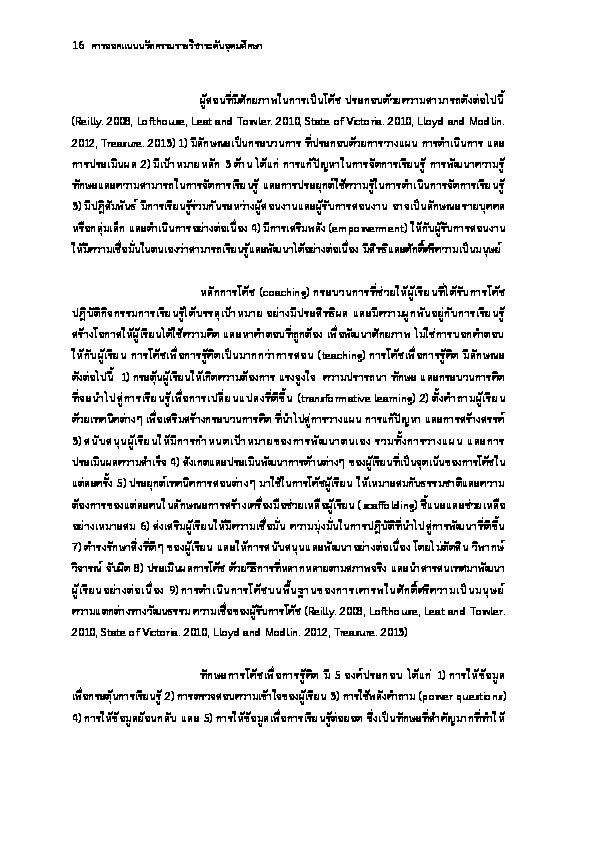 16 การออกแบบนวัตกรรมรายวิชาระดับอุดมศึกษา
ผู้สอนที่มีศักยภาพในการเป็นโค้ช ประกอบด้วยความสามารถดังต่อไปนี้
(Reilly. 2008, Lofthouse, Leat and Towler. 2010, State of Victoria. 2010, Lloyd and Modlin.
2012, Treasure. 2013) 1) มีลักษณะเป็นกระบวนการ ที่ประกอบด้วยการวางแผน การดำเนินการ และ
การประเมินผล 2) มีเป้าหมายหลัก 3 ด้าน ได้แก่ การแก้ปัญหาในการจัดการเรียนรู้ การพัฒนาความรู้
ทักษะและความสามารถในการจัดการเรียนรู้ และการประยุกต์ใช้ความรู้ในการดำเนินการจัดการเรียนรู้
3) มีปฏิสัมพันธ์ มีการเรียนรู้ร่วมกันระหว่างผู้สอนงานและผู้รับการสอนงาน อาจเป็นลักษณะรายบุคคล
หรือกลุ่มเล็ก และดำเนินการอย่างต่อเนื่อง 4) มีการเสริมพลัง (empowerment) ให้กับผู้รับการสอนงาน
ให้มีความเชื่อมั่นในตนเองว่าสามารถเรียนรู้และพัฒนาได้อย่างต่อเนื่อง มีสิทธิและศักดิ์ศรีความเป็นมนุษย์
หลักการโค้ช (coaching) กระบวนการที่ช่วยให้ผู้เรียนที่ได้รับการโค้ช
ปฏิบัติกิจกรรมการเรียนรู้ได้บรรลุเป้าหมาย อย่างมีประสิทธิผล และมีความผูกพันอยู่กับการเรียนรู้
สร้างโอกาสให้ผู้เรียนได้ใช้ความคิด และหาคำตอบที่ถูกต้อง เพื่อพัฒนาศักยภาพ ไม่ใช่การบอกคำตอบ
ให้กับผู้เรียน การโค้ชเพื่อการรู้คิดเป็นมากกว่าการสอน (teaching) การโค้ชเพื่อการรู้คิด มีลักษณะ
ดังต่อไปนี้ 1) กระตุ้นผู้เรียนให้เกิดความต้องการ แรงจูงใจ ความปรารถนา ทักษะ และกระบวนการคิด
ที่จะนำไปสู่การเรียนรู้เพื่อการเปลี่ยนแปลงที่ดีขึ้น (transformative learning) 2) ตั้งคำถามผู้เรียน
ด้วยเทคนิคต่างๆ เพื่อเสริมสร้างกระบวนการคิด ที่นำไปสู่การวางแผน การแก้ปัญหา และการสร้างสรรค์
3) สนับสนุนผู้เรียนให้มีการกำหนดเป้าหมายของการพัฒนาตนเอง รวมทั้งการวางแผน และการ
ประเมินผลความสำเร็จ 4) สังเกตและประเมินพัฒนาการด้านต่างๆ ของผู้เรียนที่เป็นจุดเน้นของการโค้ชใน
แต่ละครั้ง 5) ประยุกต์เทคนิคการสอนต่างๆ มาใช้ในการโค้ชผู้เรียน ให้เหมาะสมกับธรรมชาติและความ
ต้องการของแต่ละคนในลักษณะการสร้างเครื่องมือช่วยเหลือผู้เรียน (scaffolding) ชี้แนะและช่วยเหลือ
อย่างเหมาะสม 6) ส่งเสริมผู้เรียนให้มีความเชื่อมั่น ความมุ่งมั่นในการปฏิบัติที่นำไปสู่การพัฒนาที่ดีขึ้น
7) ดำรงรักษาสิ่งที่ดีๆ ของผู้เรียน และให้การสนับสนุนและพัฒนาอย่างต่อเนื่อง โดยไม่ตัดสิน วิพากษ์
วิจารณ์ จับผิด 8) ประเมินผลการโค้ช ด้วยวิธีการที่หลากหลายตามสภาพจริง และนำสารสนเทศมาพัฒนา
ผู้เรียนอย่างต่อเนื่อง 9) การดำเนินการโค้ชบนพื้นฐานของการเคารพในศักดิ์ศรีความเป็นมนุษย์
ความแตกต่างทางวัฒนธรรม ความเชื่อของผู้รับการโค้ช (Reilly. 2008, Lofthouse, Leat and Towler.
2010, State of Victoria. 2010, Lloyd and Modlin. 2012, Treasure. 2013)
ทักษะการโค้ชเพื่อการรู้คิด มี 5 องค์ประกอบ ได้แก่ 1) การให้ข้อมูล
เพื่อกระตุ้นการเรียนรู้ 2) การตรวจสอบความเข้าใจของผู้เรียน 3) การใช้พลังคำถาม (power questions)
4) การให้ข้อมูลย้อนกลับ และ 5) การให้ข้อมูลเพื่อการเรียนรู้ต่อยอด ซึ่งเป็นทักษะที่สำคัญมากที่ทำให้